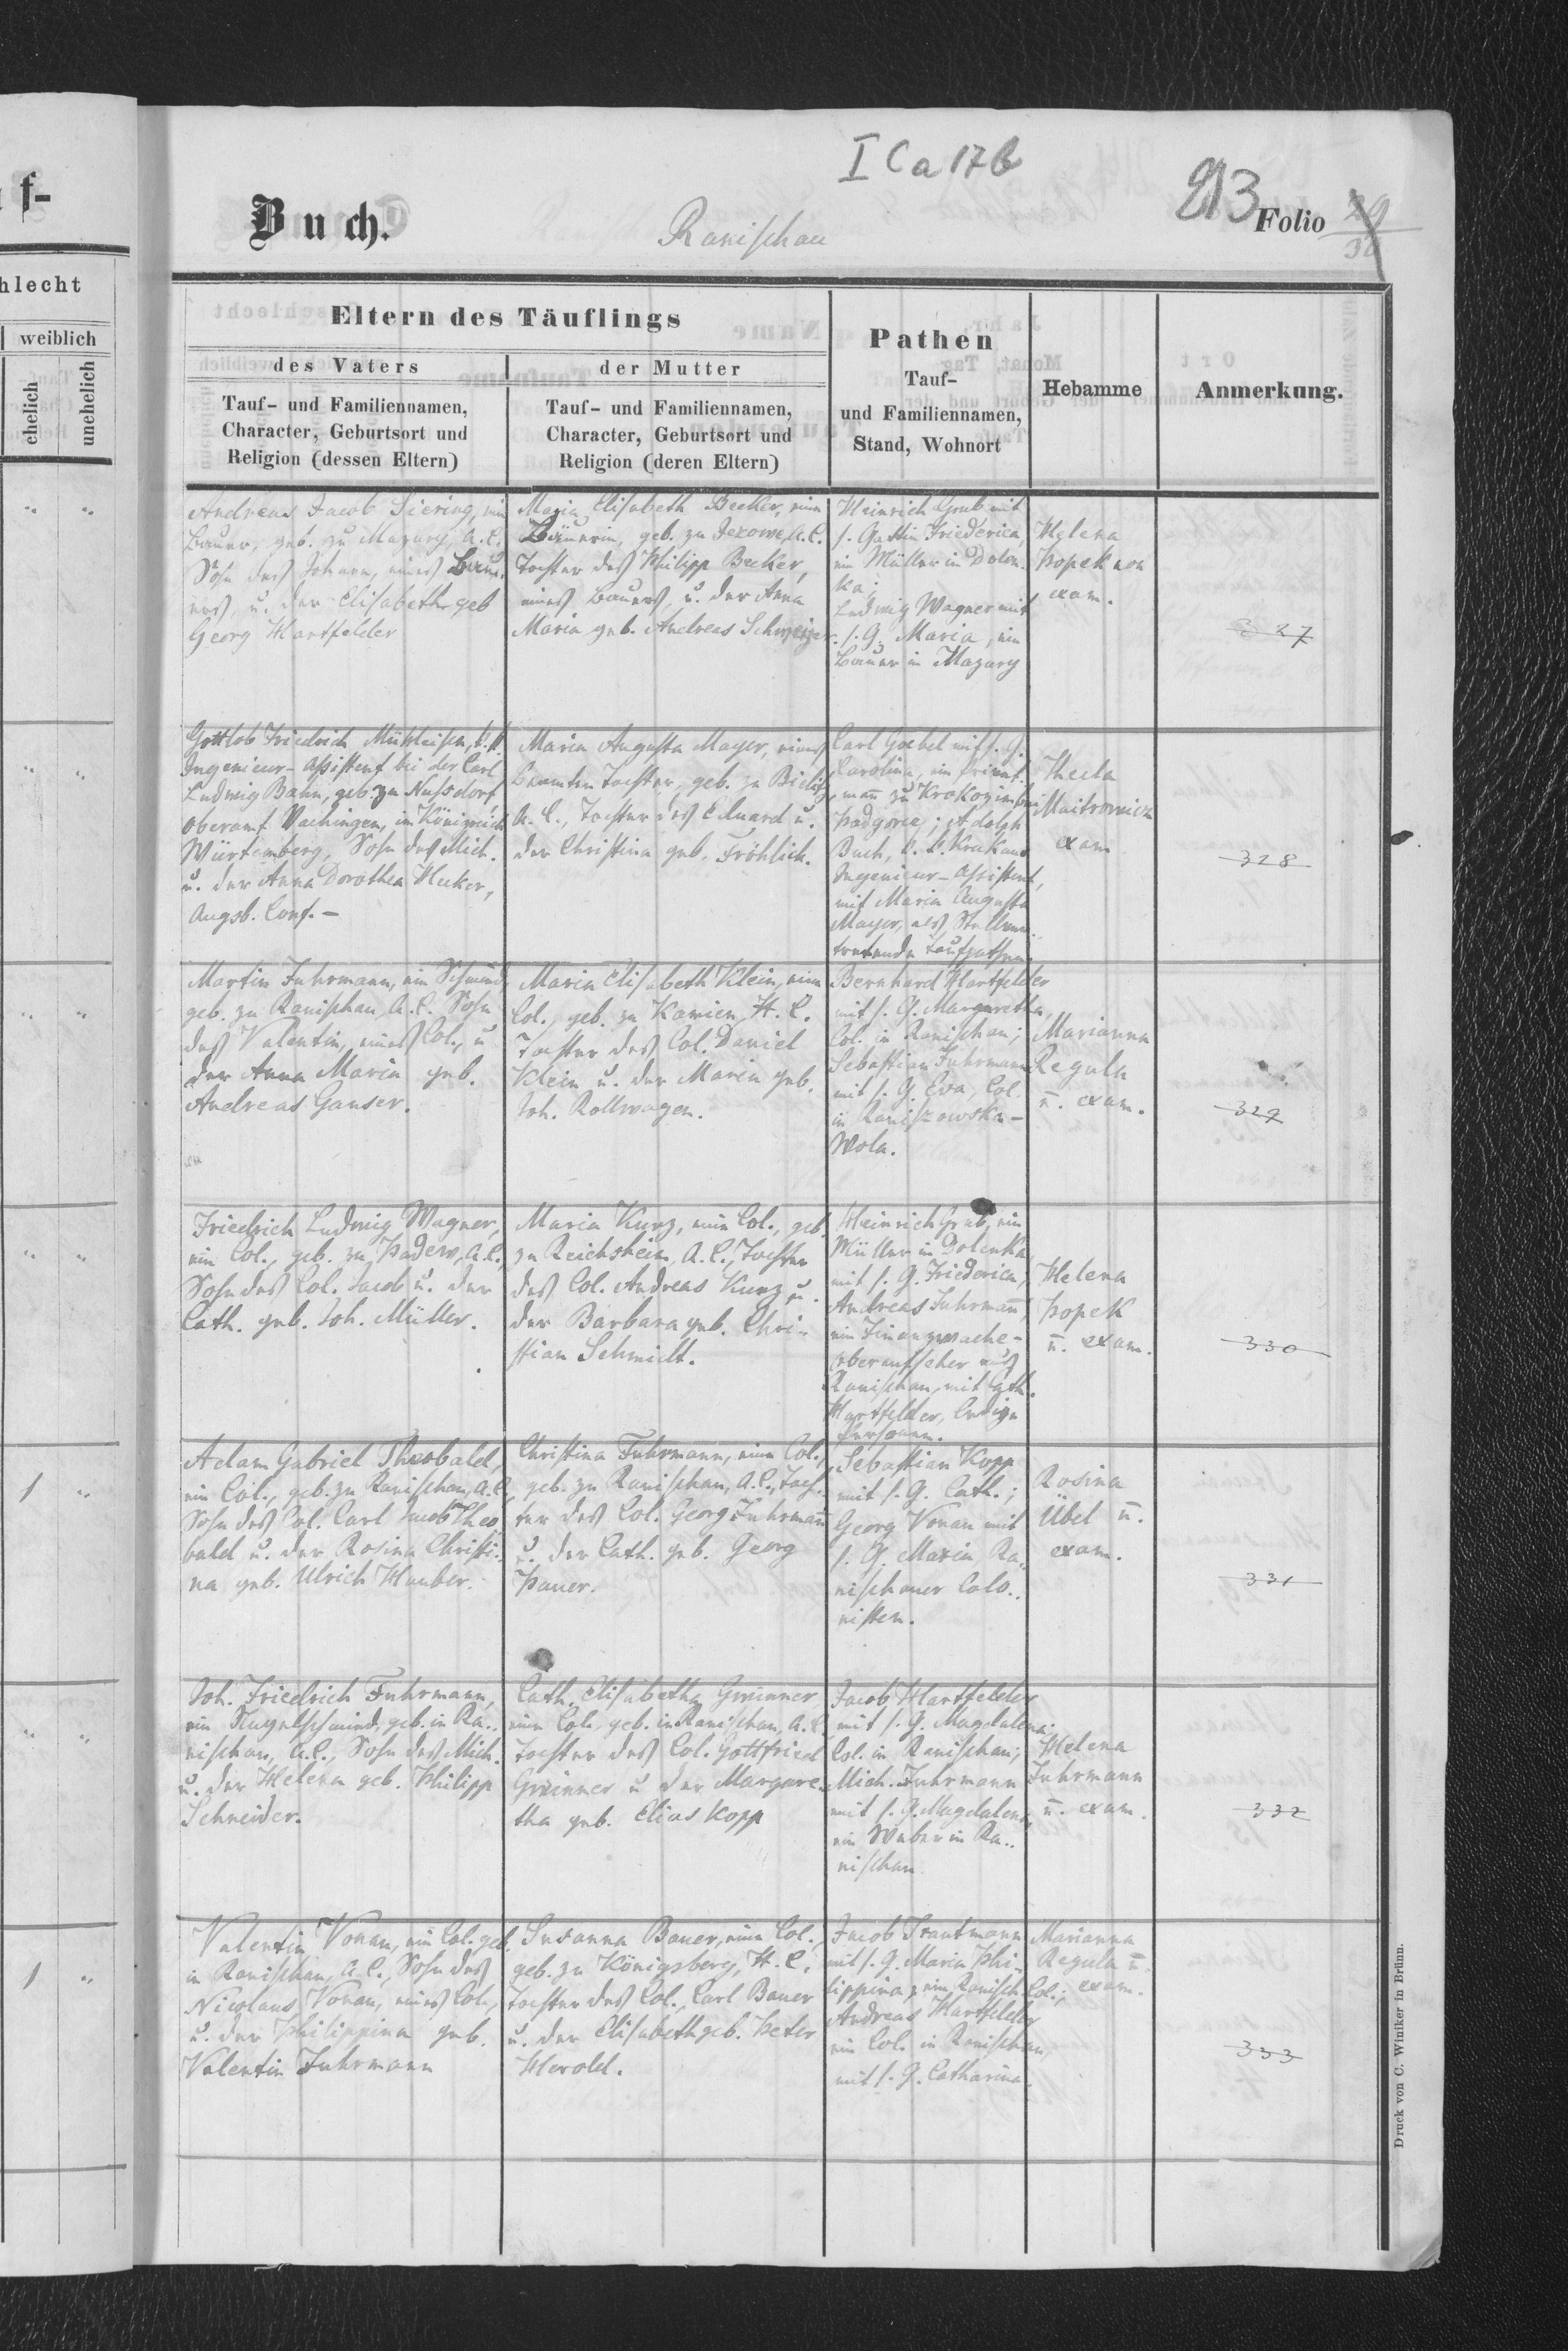 I C a 17 b
Buch.
Ranischau
213
Folio 29
30
f-
hlecht
weiblich
ehelich
unehelich
Eltern des Täuflings
des Vaters
der Mutter
Tauf- und Familiennamen,
Character, Geburtsort und
Religion (dessen Eltern)
Tauf- und Familiennamen,
Character, Geburtsort und
Religion (deren Eltern)
Pathen
Tauf-
und Familiennamen,
Stand, Wohnort
Hebamme
Anmerkung.
Andreas Jacob Siering, ein
Bauer, geb. zu Mazury, A. C.
Sohn des Johann, eines Bau-
ers, u. der Elisabeth geb
Georg Hartfelder
Maria Elisabeth Becker, eine
Bäuerin, geb. zu Jezowe, A. C.
Tochter des Philipp Becker,
eines Bauers, u. der Anna
Maria geb. Andreas Schweizer.
Heinrich Grub mit
s. Gattin Friederica
ein Müller in Dolen-
ka;
Ludwig Wagner mit
s. G. Maria, ein
Bauer in Mazury
Helena
Popek non
exam.
327
Gottlob Friedrich Mühleisen, k. k.
Ingenieur-Assistent bei der Carl
Ludwig Bahn, geb. zu Nussdorf,
Oberamt Vaihingen, im Königreich
Würtemberg, Sohn des Mich.
u. der Anna Dorothea Hecker,
Augsb. Conf. –
Maria Augusta Mayer, eines
Beamten Tochter, geb. zu Bielitz
A. C., Tochter des Eduard u.
der Christina geb. Fröhlich.
Carl Goebel mit s. G.
Carolina, ein Privat-
mann zu Krakozim bei
Podgorze; Adolph
Buch, k. k. Krakaus
Ingenieur-Assistent,
mit Maria Augusta
Mayer, als Stellver-
tretende Taufpathen
Thecla
Maitrowicz
exam
328
Martin Fuhrmann, ein Schmied,
geb. zu Ranischau, A. C. Sohn
des Valentin, eines Col., u
der Anna Maria geb.
Andreas Ganser.
Maria Elisabeth Klein, eine
Col., geb. zu Kamien, H. C.
Tochter des Col. Daniel
Klein u. der Maria geb.
Joh. Rollwagen.
Bernhard Hartfelder
mit s. G. Margaretha,
Col. in Ranischau;
Sebastian Fuhrmann
mit s. G. Eva, Col.
in Raniszowska-
Wola.
Marianna
Regula
n. exam.
329
Friedrich Ludwig Wagner,
ein Col., geb. zu Padew, A. C.,
Sohn des Col. Jacob u. der
Cath. geb. Joh. Müller.
Maria Kurz, eine Col., geb.
zu Reichsheim, A. C., Tochter
des Col. Andreas Kurz u.
der Barbara geb. Chri-
stian Schmidt.
Heinrich Grub, ein
Müller in Dolenka
mit s. G. Friederica,
Andreas Fuhrmann
ein Finanzwache-
Oberaufseher aus
Ranischau, mit Cath.
Hartfelder, ledige
Personen.
Helena
Popek
n. exam.
330
1
Adam Gabriel Theobald,
ein Col., geb. zu Ranischau, A. C.
Sohn des Col. Carl Jacob Theo
bald u. der Rosina Christi-
na geb. Ulrich Hauber.
Christina Fuhrmann, eine Col.,
geb. zu Ranischau, A. C., Toch-
ter des Col. Georg Fuhrmann
u. der Cath. geb. Georg
Pauer.
Sebastian Kopp
mit s. G. Cath.;
Georg Vonau mit
s. G. Maria, Ra-
nischauer Colo-
nisten.
Rosina
Übel n.
exam.
331
Joh. Friedrich Fuhrmann,
ein Nagelschmied, geb. in Ra-
nischau, A. C., Sohn des Mich.
u. der Helena geb. Philipp
Schneider.
Cath. Elisabetha Greinner
eine Col., geb. in Ranischau, A. C.
Tochter des Col. Gottfried
Greinner u der Margare-
tha geb. Elias Kopp
Jacob Hartfelder
mit s. G. Magdalena,
Col. in Ranischau;
Mich. Fuhrmann
mit s. G. Magdalena,
ein Weber in Ra-
nischau
Helena
Fuhrmann
n. exam.
332
1
Valentin Vonau, ein Col. geb.
in Ranischau, A. C., Sohn des
Nicolaus Vonau, eines Col.,
u. der Philippina geb.
Valentin Fuhrmann
Susanna Bauer, eine Col.,
geb. zu Königsberg, H. C.,
Tochter des Col. Carl Bauer
u. der Elisabeth geb. Peter
Herold.
Jacob Trautmann
mit s. G. Maria Phi-
lippina, ein Ranisch. Col.;
Andreas Hartfelder
ein Col. in Ranischau,
mit s. G. Catharina.
Marianna
Regula n.
exam.
333
Druck von C. Winiker in Brünn.